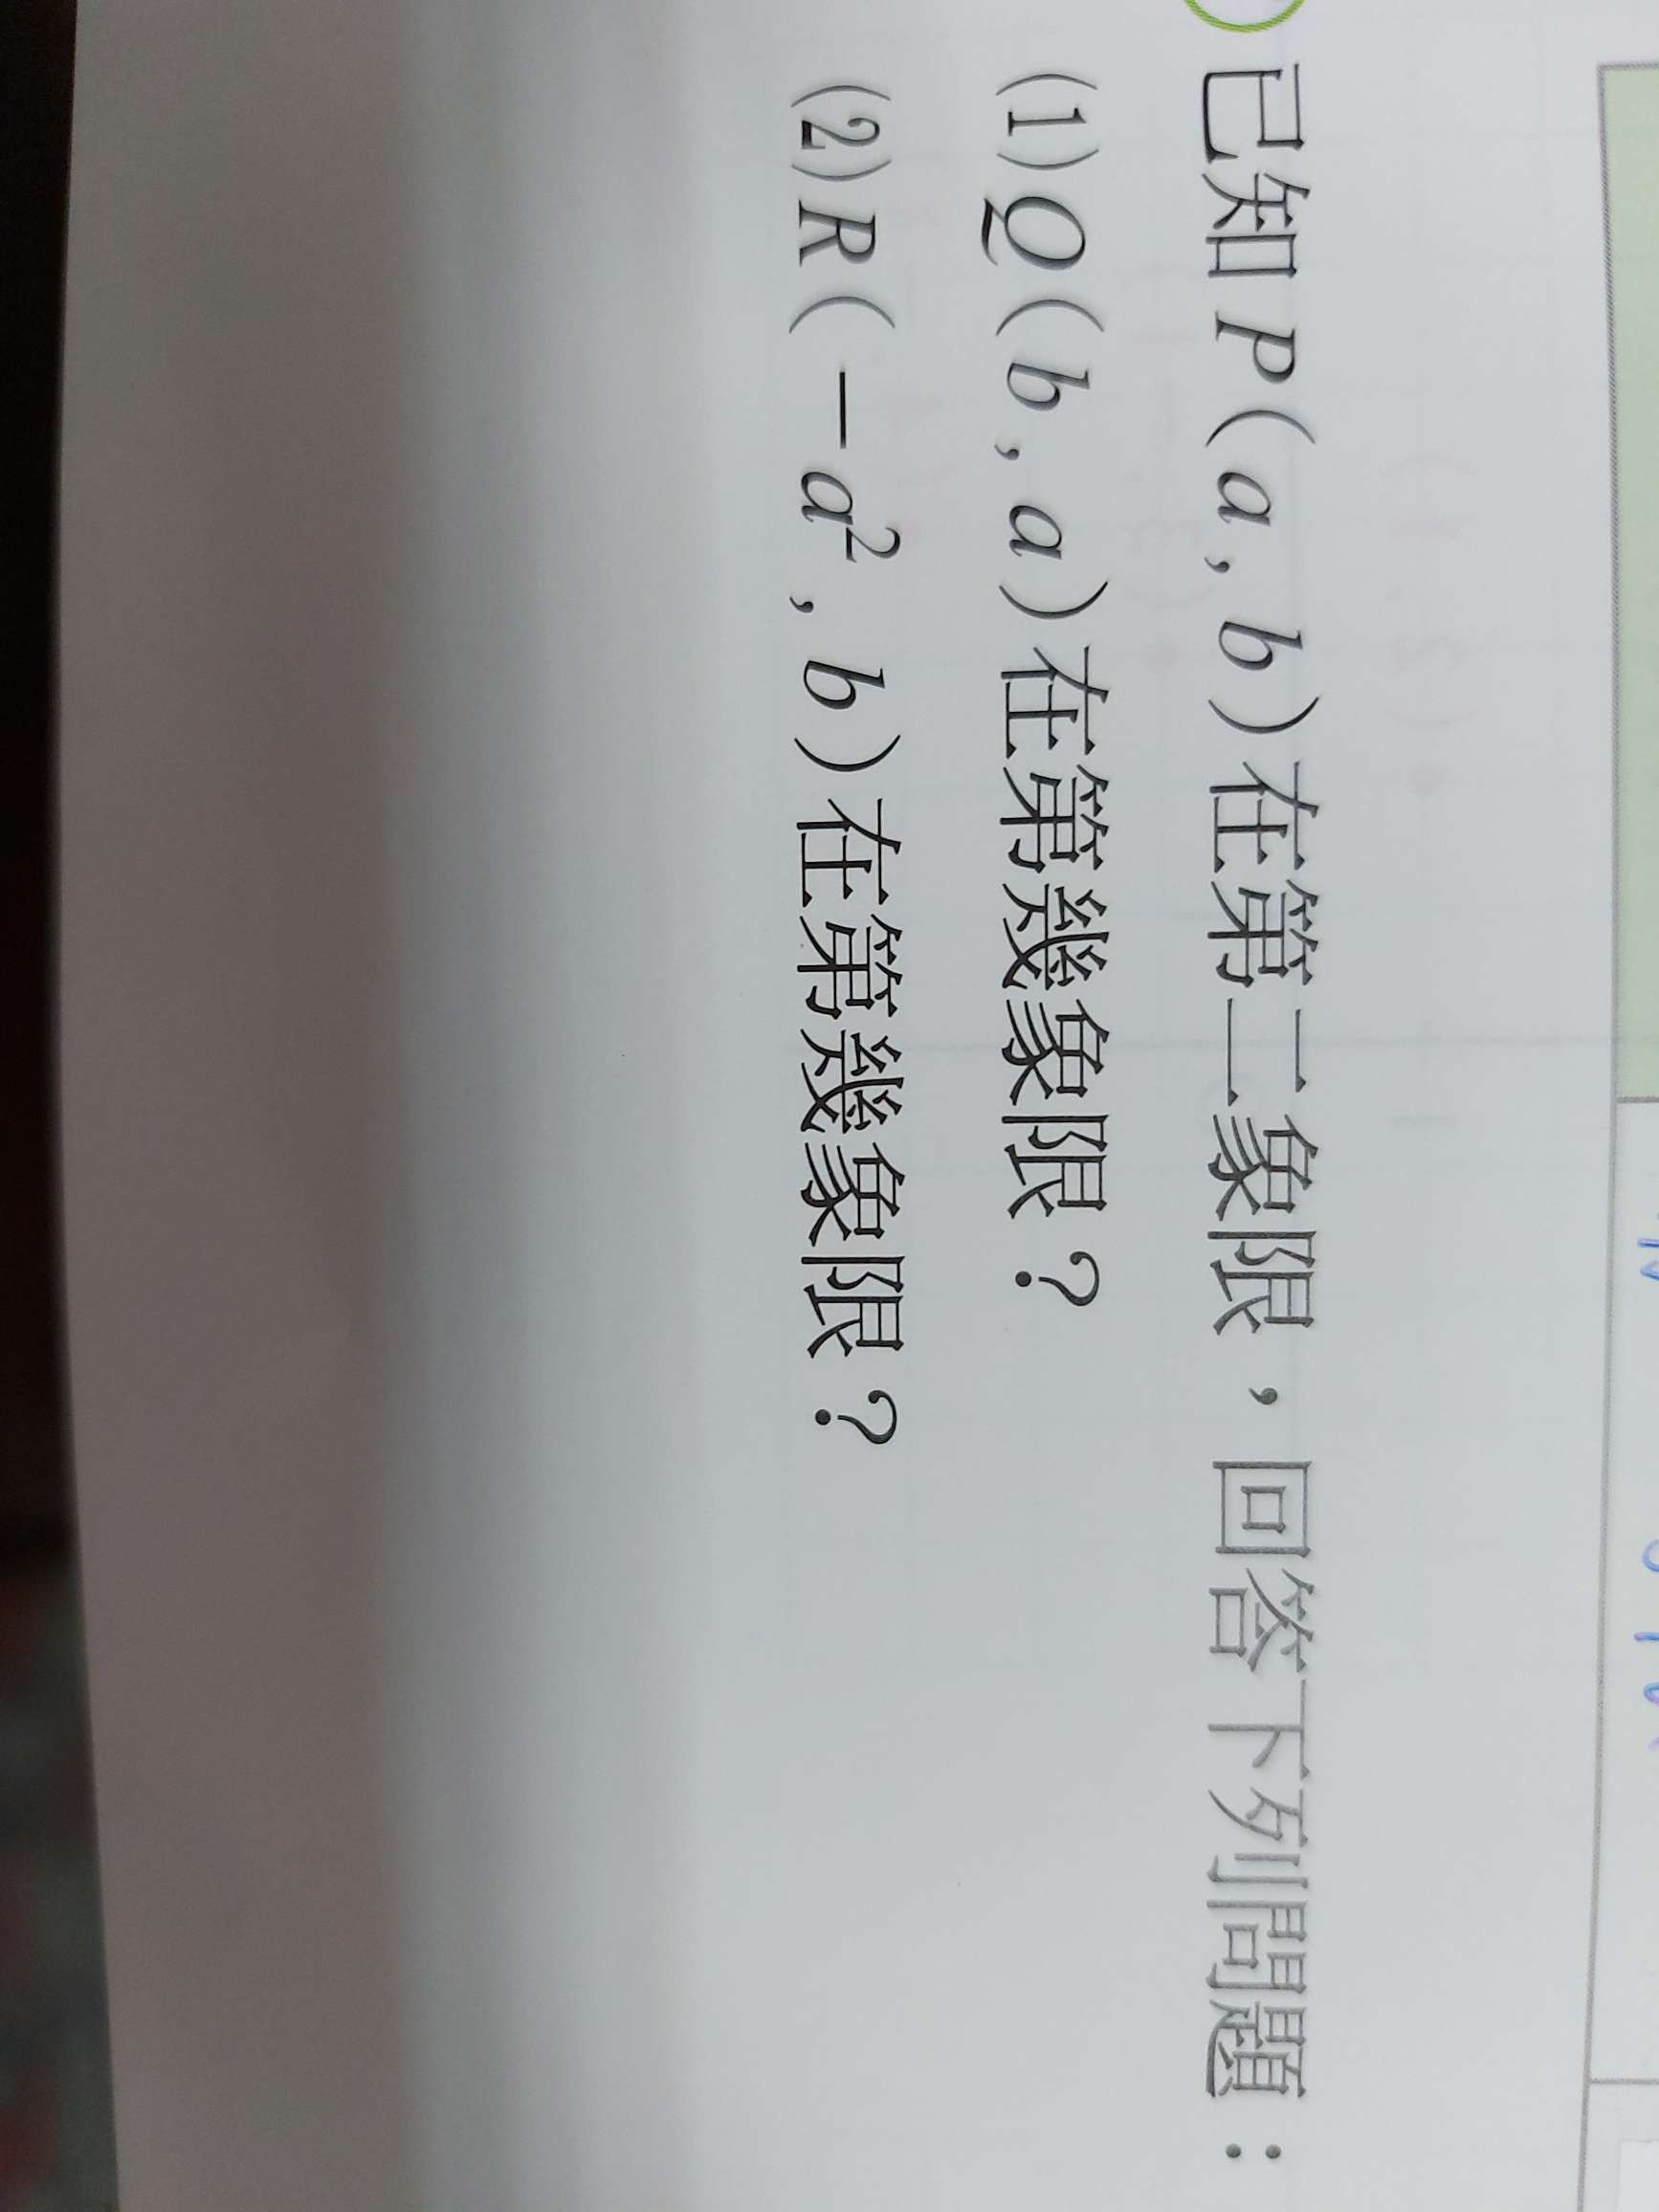 已知 P(a , b)在第二象限，回答下列問題：
(1)Q(b , a)在第幾象限？
(2)R(－a², b)在第幾象限？